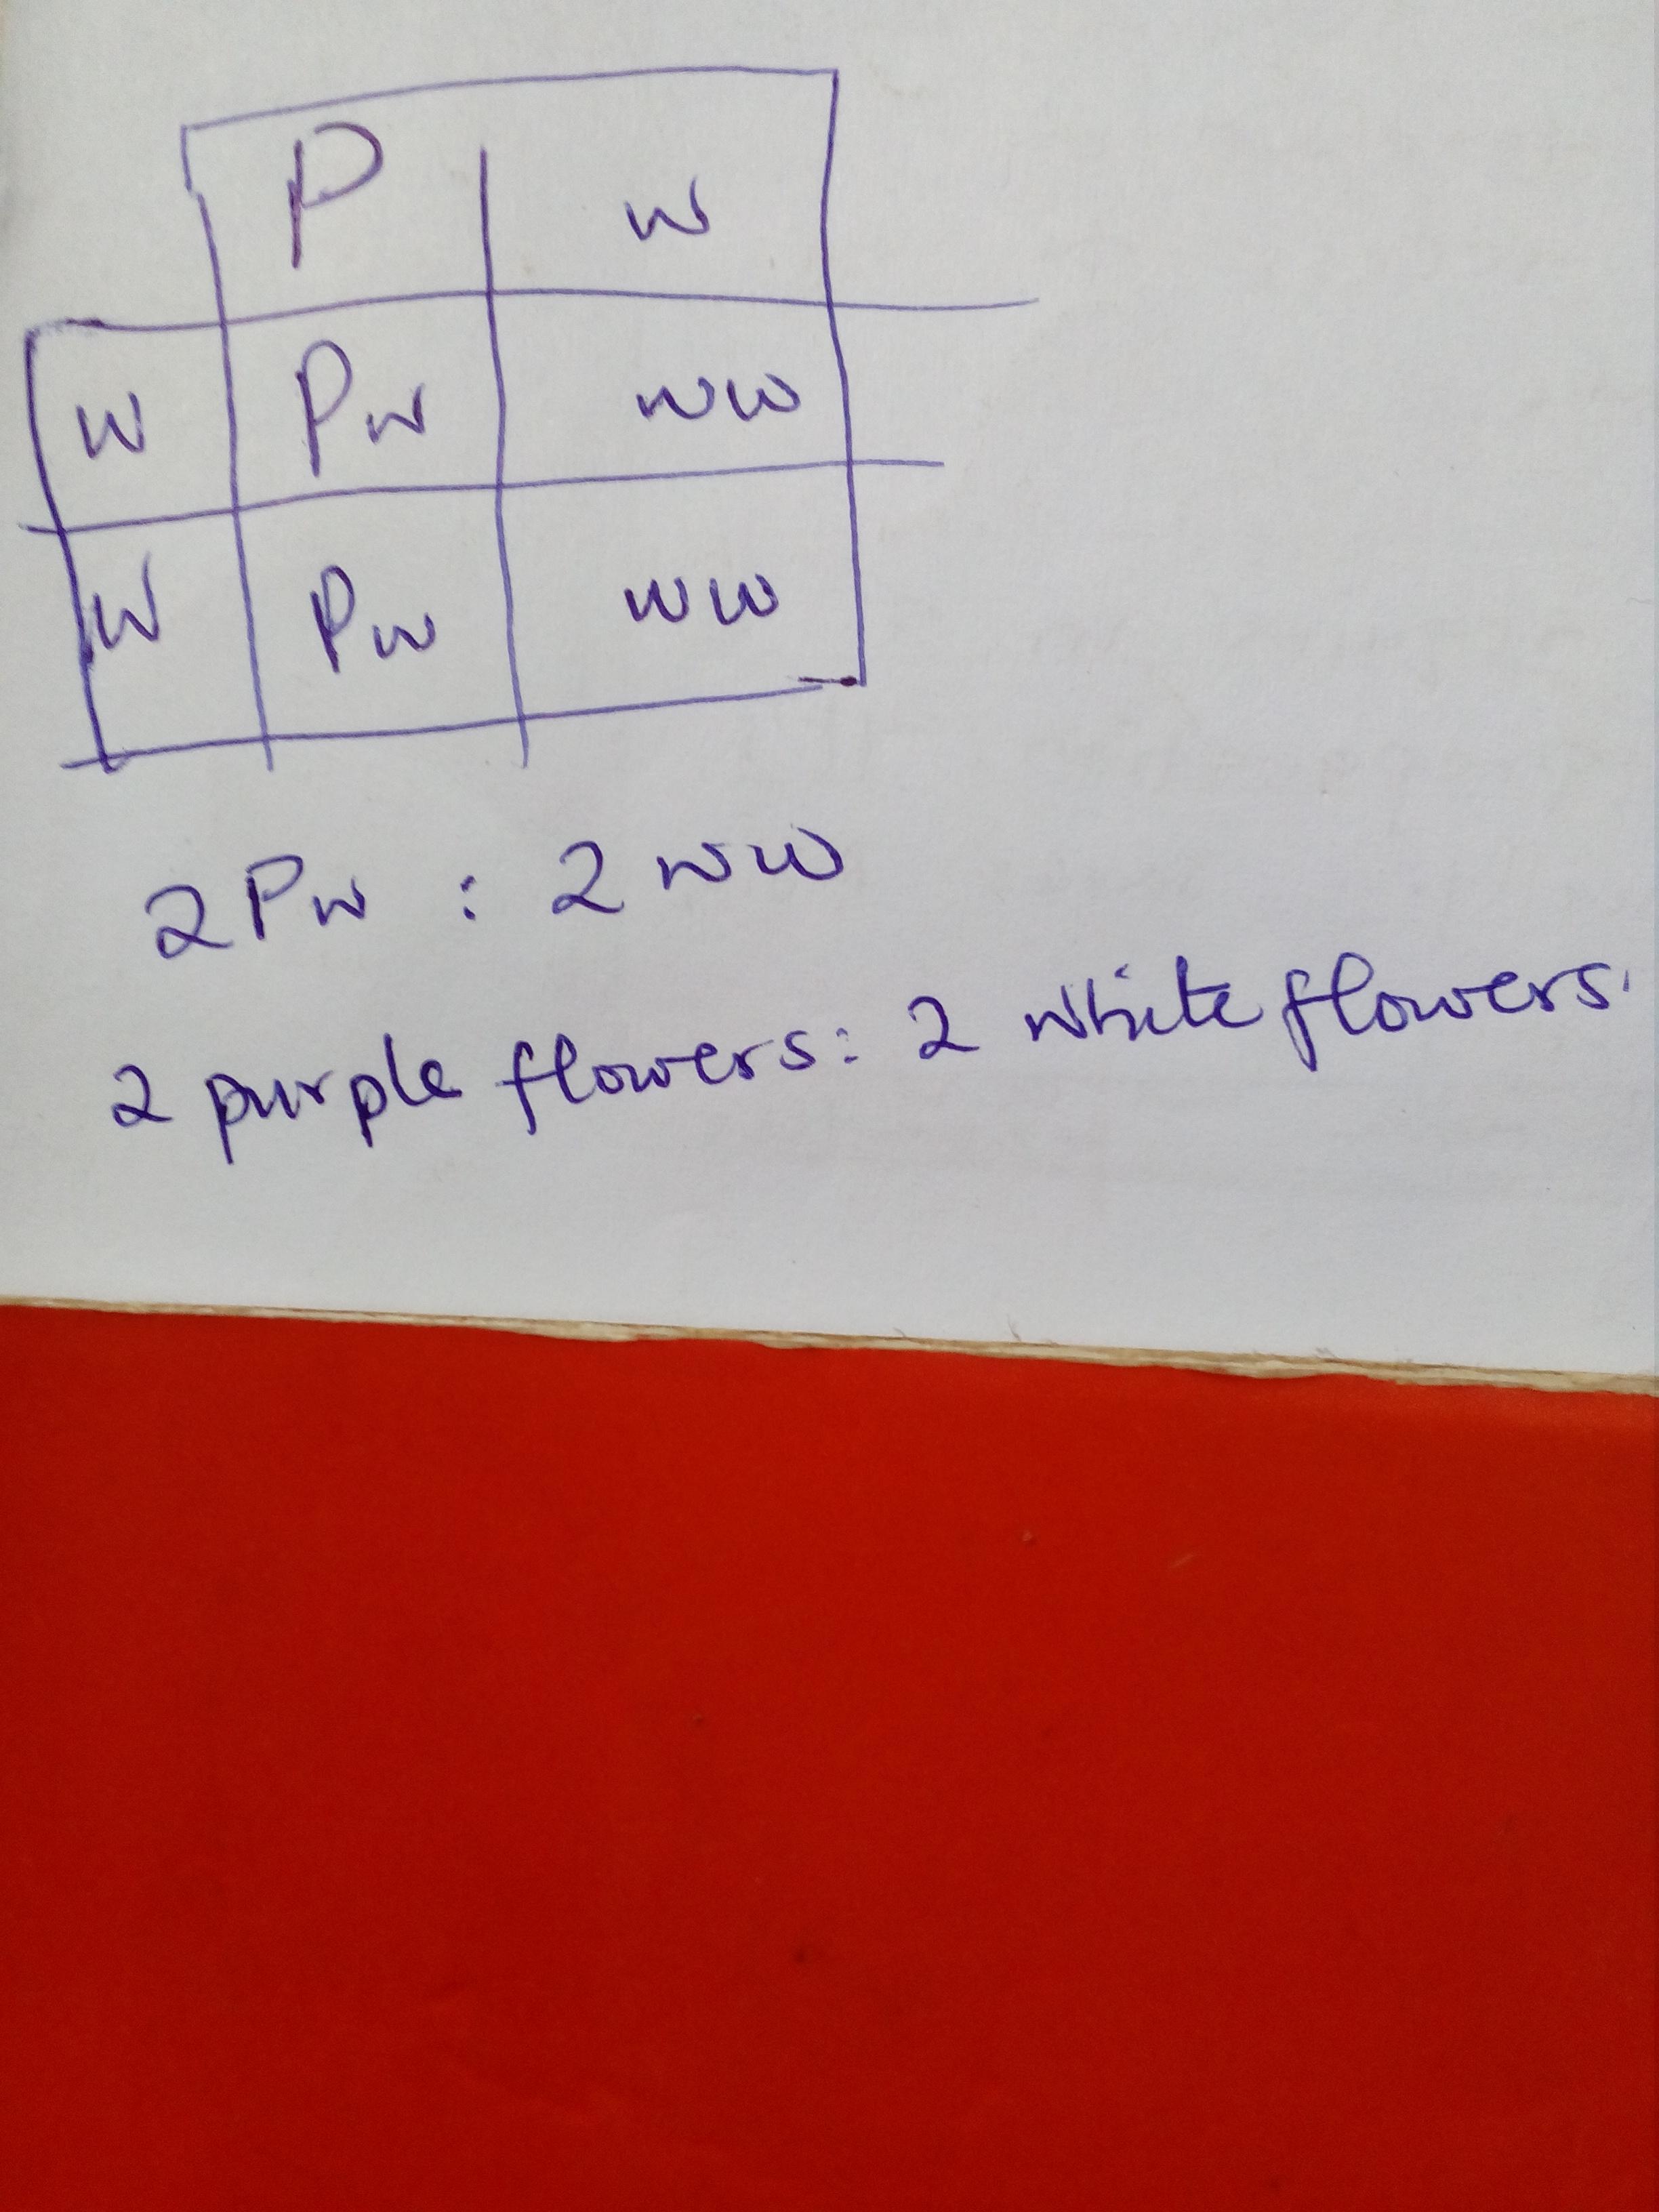 P w
w Pw ww
w Pw ww
2 Pw : 2 ww
2 purple flowers: 2 white flowers.